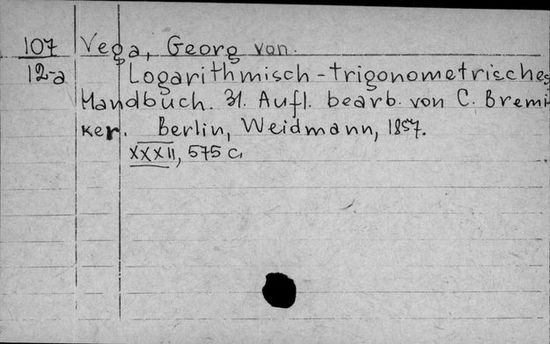 107 Vega, Georg von.
12-a Logarithmisch-trigonometrisches
Handbuch. 31. Aufl. bearb. von C. Bremi-
ker. Berlin, Weidmann, 1857.
XXXII, 575 c.